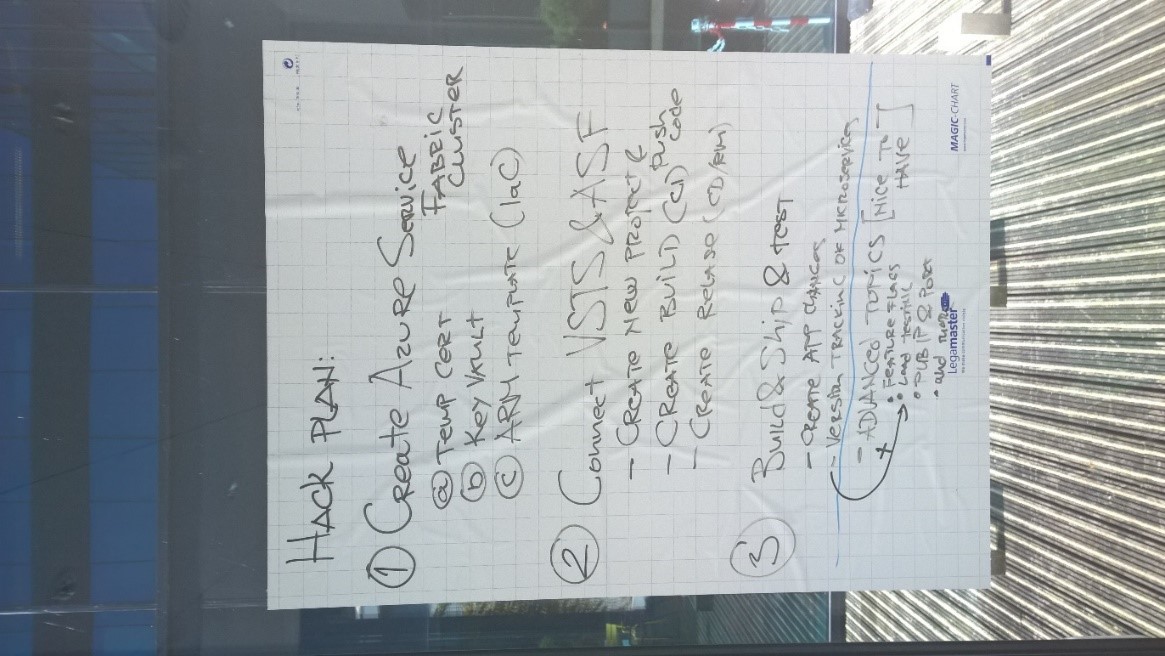 HACK PLAN:
① CREATE AZURE SERVICE
FABRIC
CLUSTER
ⓐ TEMP CERT
ⓑ KEY VAULT
ⓒ ARM TEMPLATE (IaC)
② CONNECT VSTS & ASF
- CREATE NEW PROJECT &
push
- CREATE BUILD (CI) CODE
- CREATE RELASE (CD/RM)
③ Build & Ship & test
- CREATE APP CHANGES
- VERSION TRACKING OF MICROSERVICES
- ADVANCED TOPICS [NICE TO
HAVE]
+ • FEATURE FLAGS
• Load testing
• PUB IP & PORT
• and more
Legamaster
MAGIC-CHART